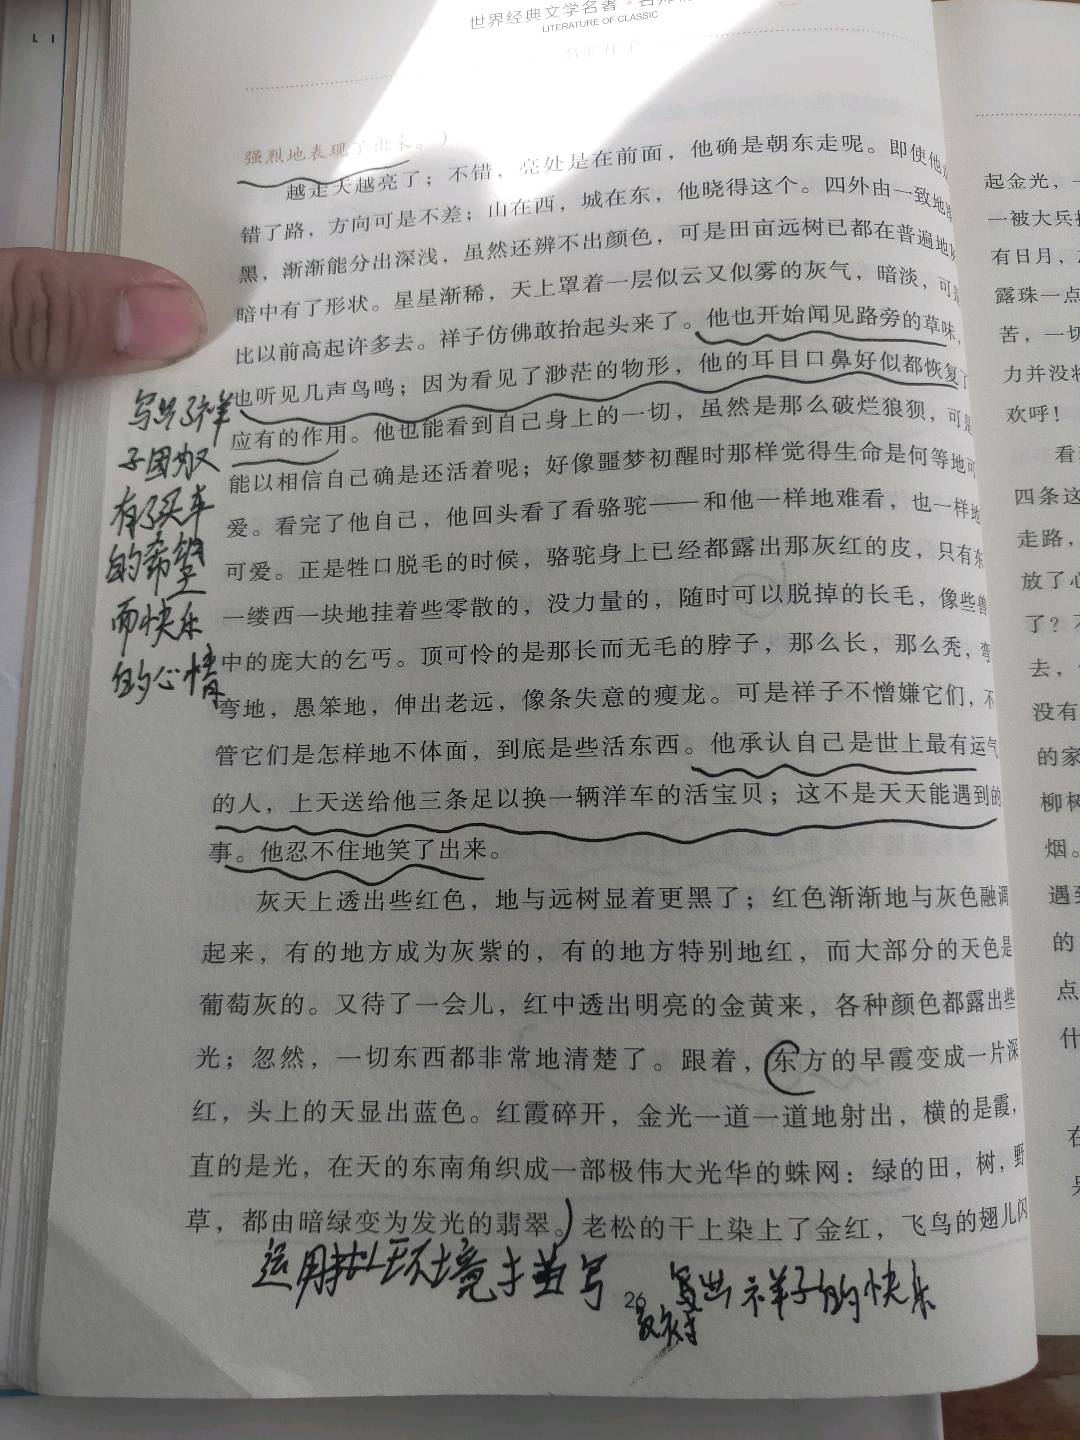 世界经典文学名著·名师
LITERATURE OF CLASSIC
强烈地表现了出来。）
越走天越亮了；不错，亮处是在前面，他确是朝东走呢。即使他
错了路，方向可是不差；山在西，城在东，他晓得这个。四外由一致地
黑，渐渐能分出深浅，虽然还辨不出颜色，可是田亩远树已都在普遍地
暗中有了形状。星星渐稀，天上罩着一层似云又似雾的灰气，暗淡，可是
比以前高起许多去。祥子仿佛敢抬起头来了。他也开始闻见路旁的草味，
也听见几声鸟鸣；因为看见了渺茫的物形，他的耳目口鼻好似都恢复了
应有的作用。他也能看到自己身上的一切，虽然是那么破烂狼狈，可是
能以相信自己确是还活着呢；好像噩梦初醒时那样觉得生命是何等地可
爱。看完了他自己，他回头看了看骆驼——和他一样地难看，也一样地
可爱。正是牲口脱毛的时候，骆驼身上已经都露出那灰红的皮，只有东
一缕西一块地挂着些零散的，没力量的，随时可以脱掉的长毛，像些兽
中的庞大的乞丐。顶可怜的是那长而无毛的脖子，那么长，那么秃，弯
弯地，愚笨地，伸出老远，像条失意的瘦龙。可是祥子不憎嫌它们，不
管它们是怎样地不体面，到底是些活东西。他承认自己是世上最有运气
的人，上天送给他三条足以换一辆洋车的活宝贝；这不是天天能遇到的
事。他忍不住地笑了出来。
灰天上透出些红色，地与远树显着更黑了；红色渐渐地与灰色融调
起来，有的地方成为灰紫的，有的地方特别地红，而大部分的天色是
葡萄灰的。又待了一会儿，红中透出明亮的金黄来，各种颜色都露出些
光；忽然，一切东西都非常地清楚了。跟着，东方的早霞变成一片深
红，头上的天显出蓝色。红霞碎开，金光一道一道地射出，横的是霞，
直的是光，在天的东南角织成一部极伟大光华的蛛网：绿的田，树，野
草，都由暗绿变为发光的翡翠。老松的干上染上了金红，飞鸟的翅儿闪
26
写出了祥
子因为又
有了买车
的希望
而快乐
的心情
运用
环境描写
写出祥子的快乐
起金光，一
一被大兵
有日月，
露珠一点
苦，一切
力并没将
欢呼！
看
四条这
走路，
放了心
了？
去，
没有
的家
柳树
烟。
遇到
的
点
什
在